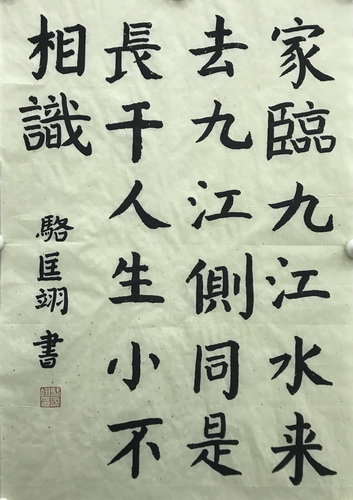 家臨九江水来
去九江側同是
長干人生小不
相識
駱匡翊書